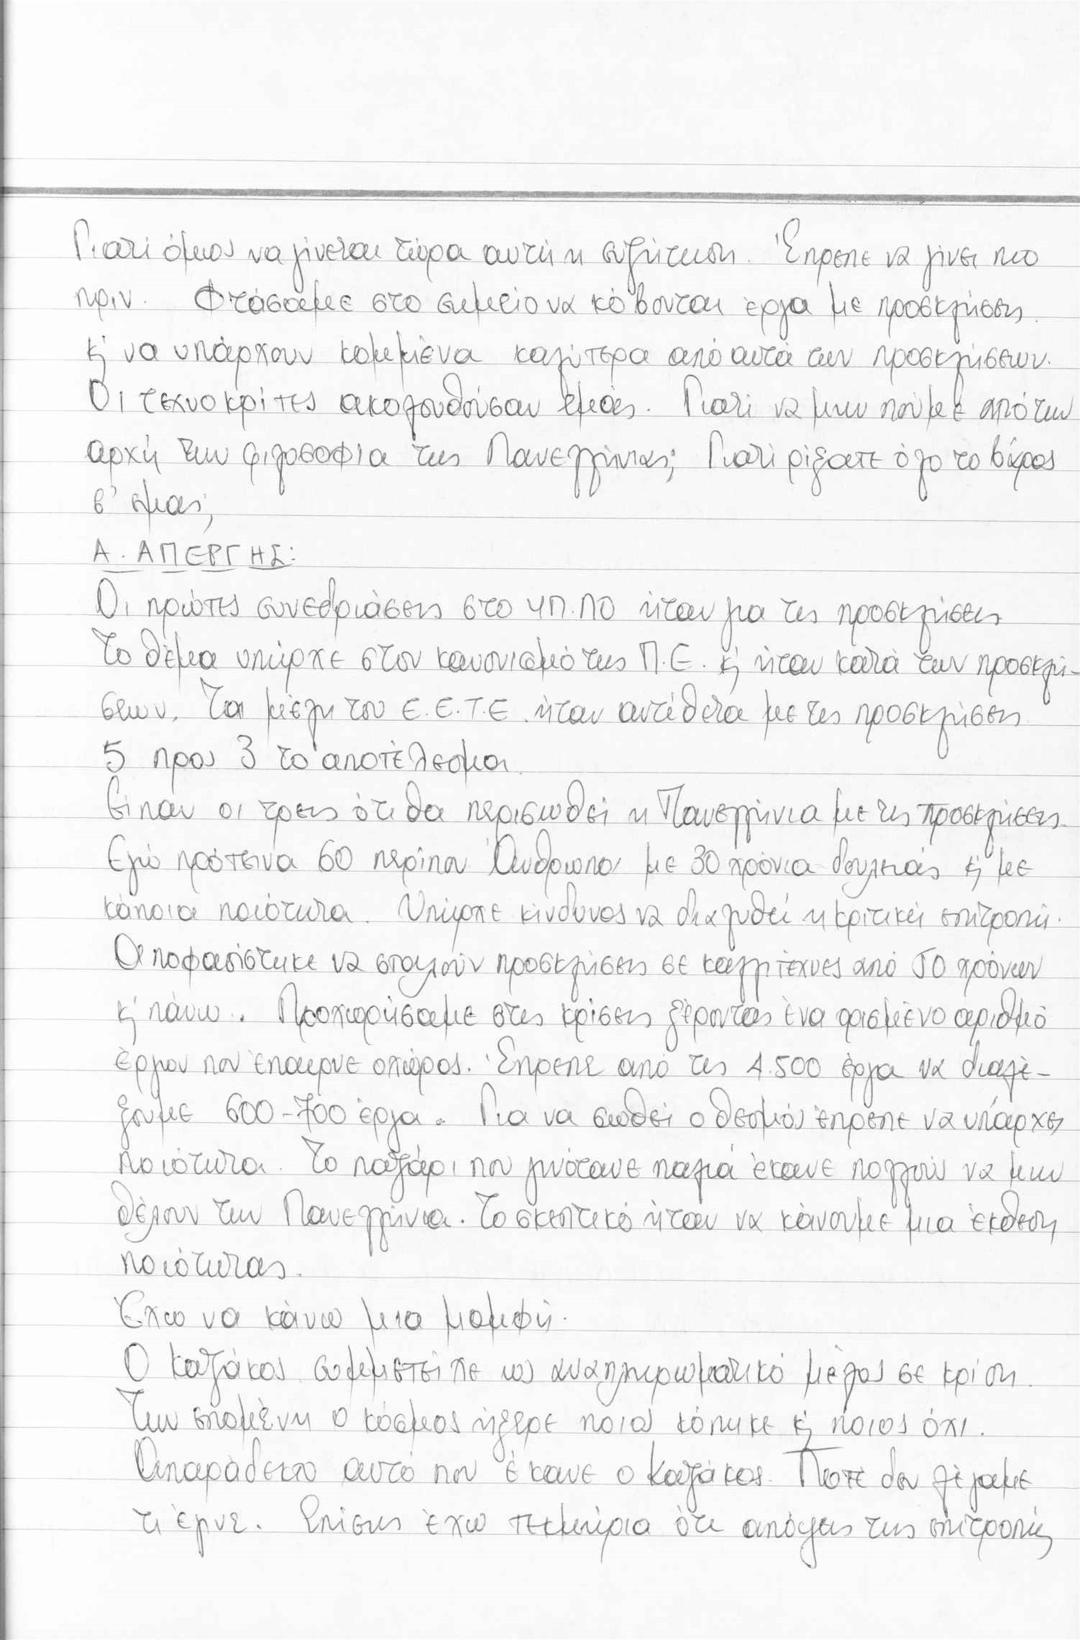 Γιατί όμως να γίνεται τώρα αυτή η συζήτηση. Έπρεπε να γίνει πιο
πριν. Φτάσαμε στο σημείο να κόβονται έργα με προσκλήσεις
κ' να υπάρχουν κομμένα καλύτερα από αυτά των προσκλήσεων.
Οι τεχνοκρίτες ακολουθούσαν εμάς. Γιατί να μην πούμε από την
αρχή την φιλοσοφία της Πανελλήνιας; Γιατί ρίξατε όλο το βάρος
σ' εμάς;
Α. ΑΠΕΡΓΗΣ:
Οι πρώτες συνεδριάσεις στο ΥΠ.ΠΟ ήταν για τις προσκλήσεις
Το θέμα υπήρχε στον κανονισμό της Π.Ε. κ' ήταν κατά των προσκλή-
σεων. Τα μέλη του Ε.Ε.Τ.Ε. ήταν αντίθετα με τις προσκλήσεις
5 προς 3 το αποτέλεσμα.
Είπαν οι τρεις ότι θα περισωθεί η Πανελλήνια με τις προσκλήσεις.
Εγώ πρότεινα 60 περίπου άνθρωποι με 30 χρόνια δουλειάς κ' με
κάποια ποιότητα. Υπήρχε κίνδυνος να διαλυθεί η κριτική επιτροπή.
Αποφασίστηκε να σταλούν προσκλήσεις σε καλλιτέχνες από 50 χρόνων
κ' πάνω. Προχωρήσαμε στις κρίσεις ξέροντας ένα ορισμένο αριθμό
έργων που έπαιρνε ο χώρος. Έπρεπε από τις 4.500 έργα να διαλέ-
ξουμε 600-700 έργα. Για να σωθεί ο θεσμός έπρεπε να υπάρχει
ποιότητα. Το παζάρι που γινότανε παλιά έκανε πολλούς να μην
θέλουν την Πανελλήνια. Το σκεπτικό ήταν να κάνουμε μια έκθεση
ποιότητας.
Έχω να κάνω μια μομφή.
Ο Καζάκος συμμετείχε ως αναπληρωματικό μέλος σε κρίση.
Την επομένη ο κόσμος ήξερε ποιος κόπηκε κ' ποιος όχι.
Απαράδεκτο αυτό που έκανε ο Καζάκος. Ποτέ δεν λέγαμε
τι έγινε. Επίσης έχω τεκμήρια ότι απόψεις της επιτροπής